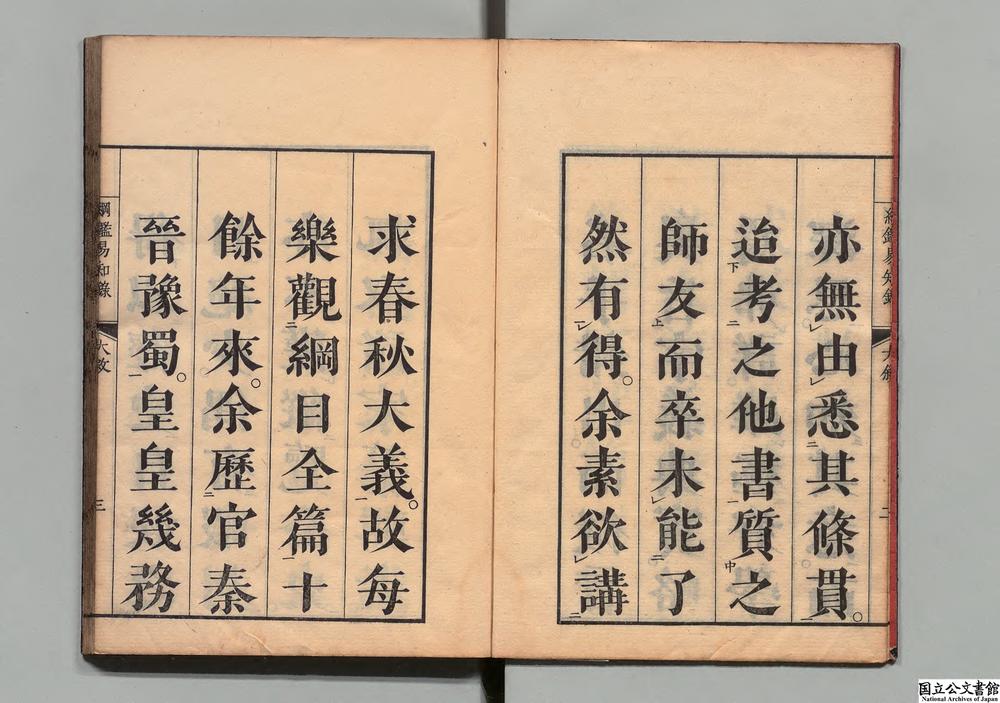 亦無由悉其條貫。
迨考之他書質之
師友而卒未能了
然有得。余素欲講
求春秋大義。故每
樂觀綱目全篇十
餘年來。余歷官秦
晉豫蜀。皇皇幾務
綱鑑易知錄
三
国立公文書館
National Archives of Japan